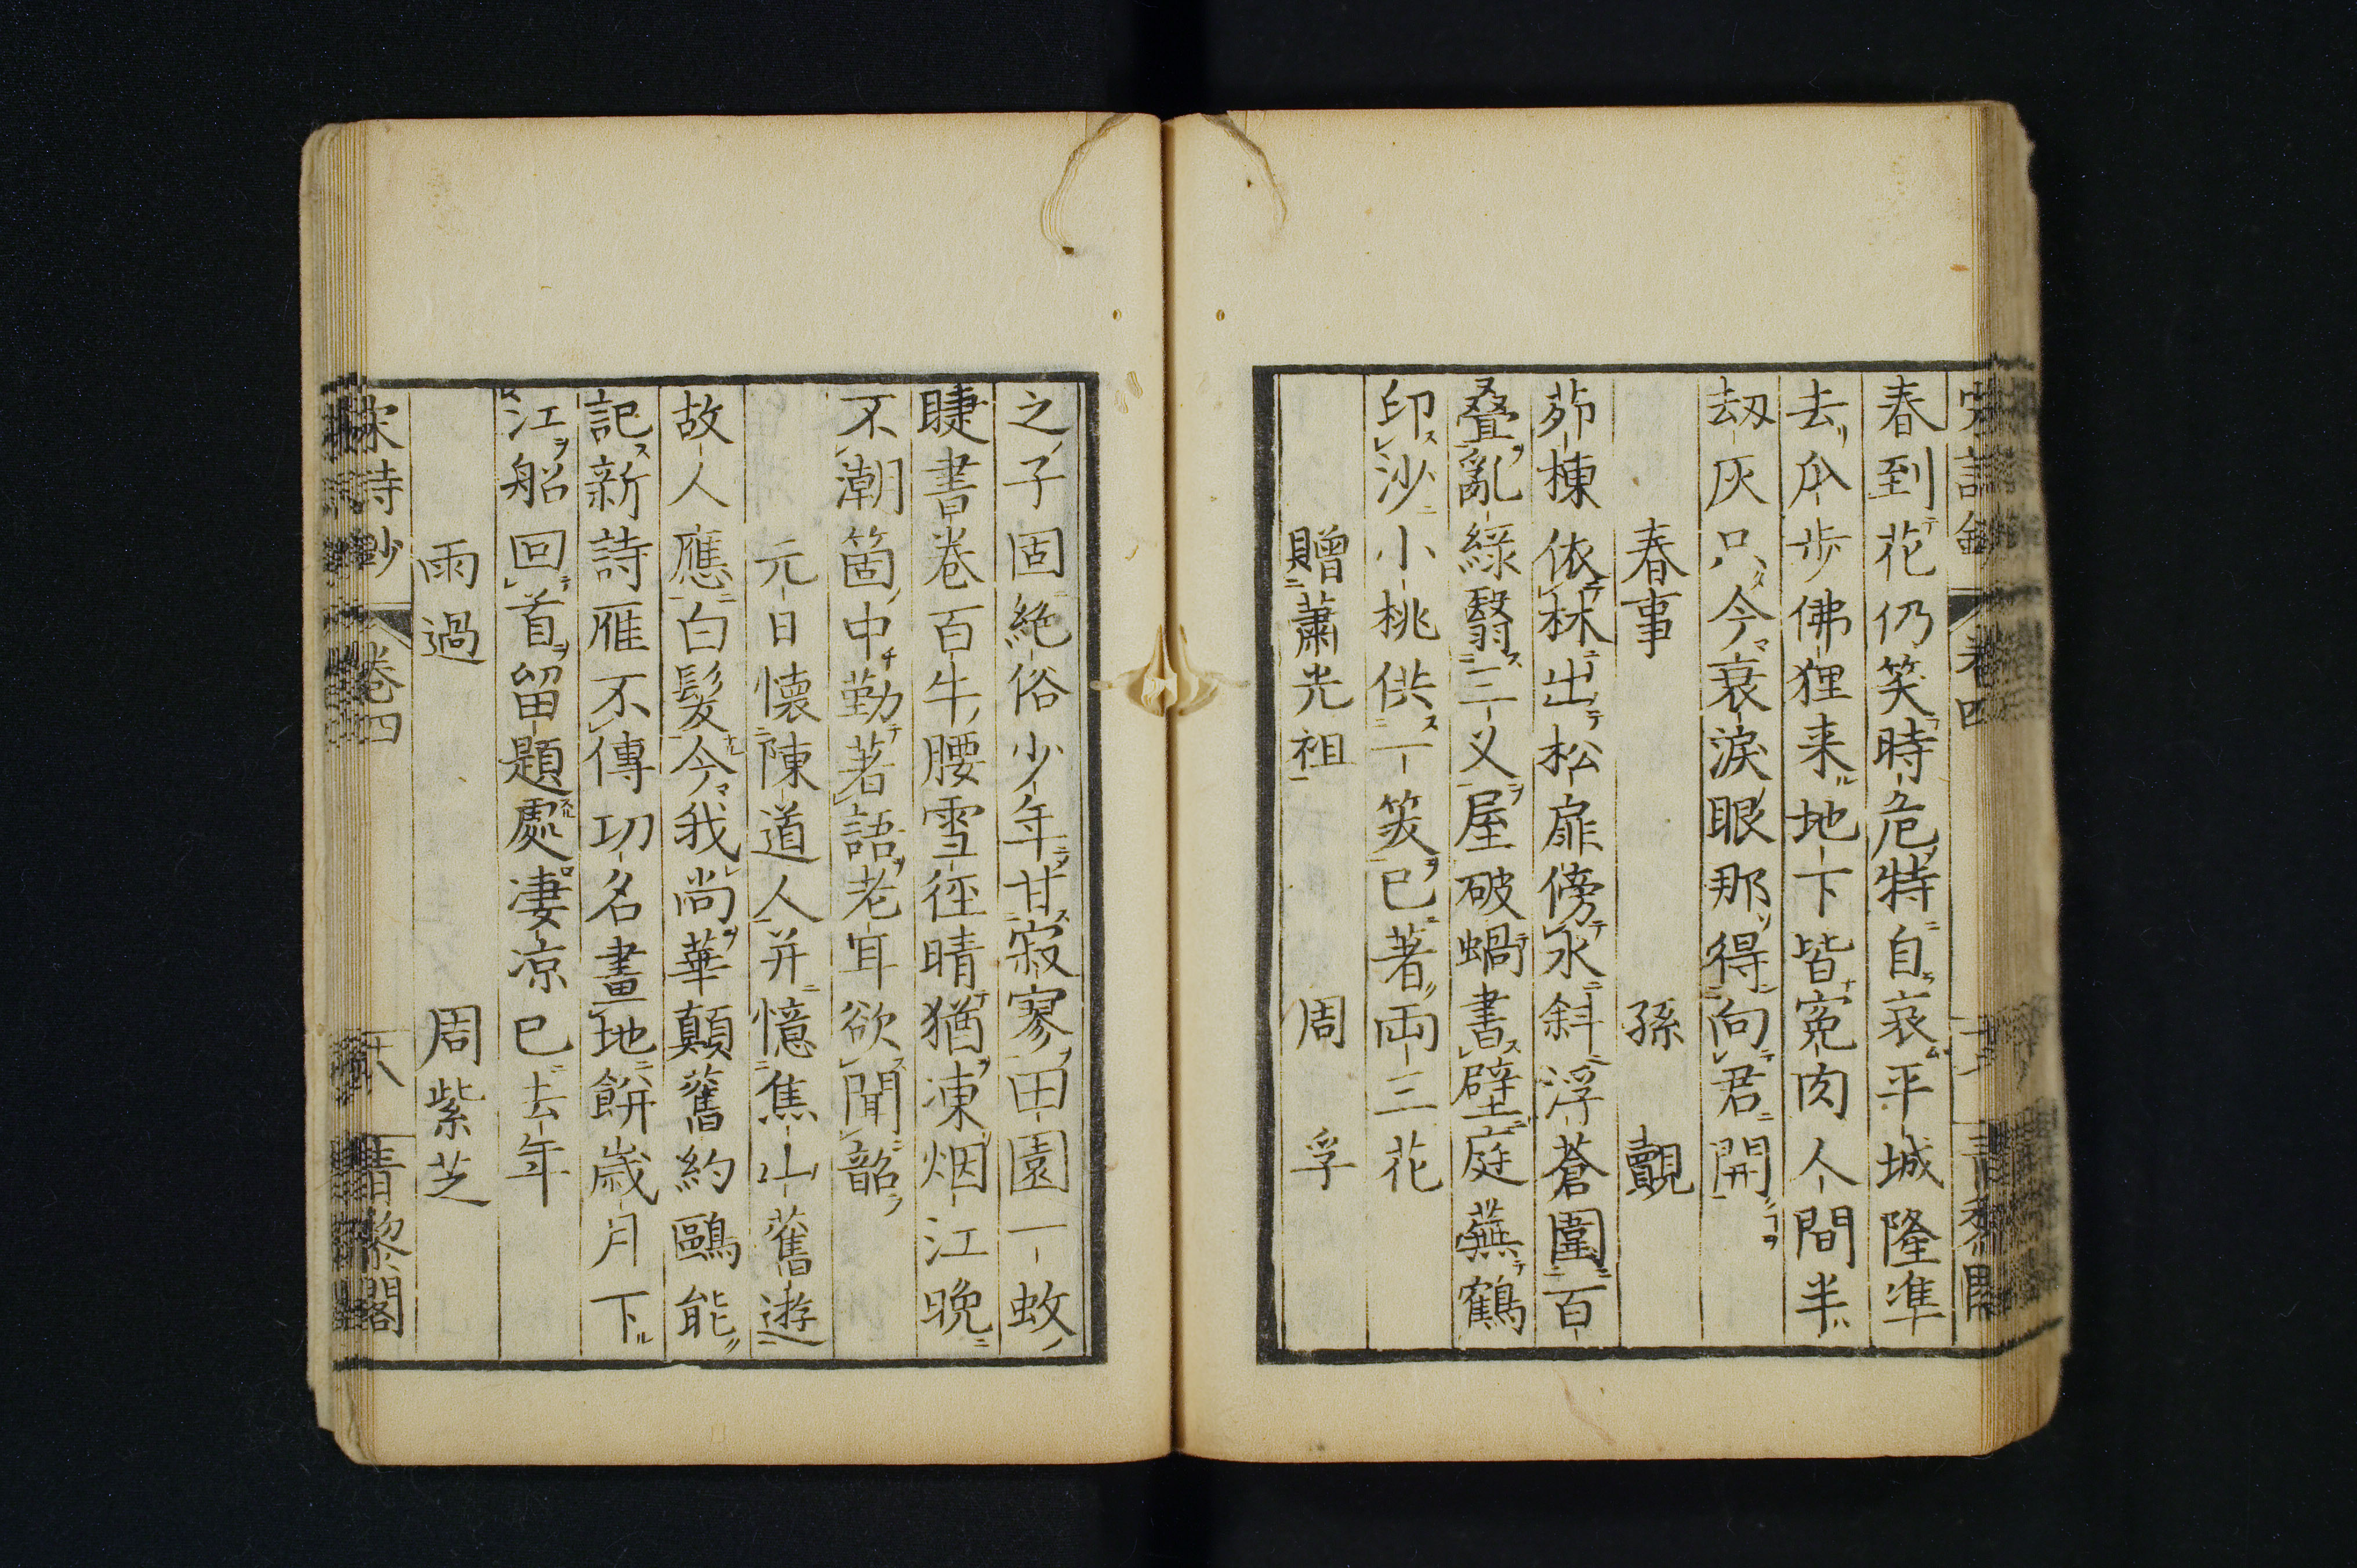 春到花仍笑時危特自哀平城隆準
去瓜步佛狸来地下皆寃肉人間半
刼灰只今衰淚眼那得向君開
春事 孫覿
茆棟依林出松扉傍水斜浮蒼圍百
叠亂綠翳三义屋破蝸書壁庭蕪鶴
印沙小桃供一笑已著両三花
贈蕭光祖 周孚
之子固絶俗少年甘寂寥田園一蚊
睫書卷百牛腰雪径晴猶凍烟江晩
不潮箇中勤著語老耳欲聞韶
元日懐陳道人并憶焦山舊遊
故人應白髪今我尚華顛舊約鷗能
記新詩雁不傳功名畫地餅歳月下
江船回首留題處凄凉已去年
雨過 周紫芝
宋詩鈔 卷四 十八 青黎閣